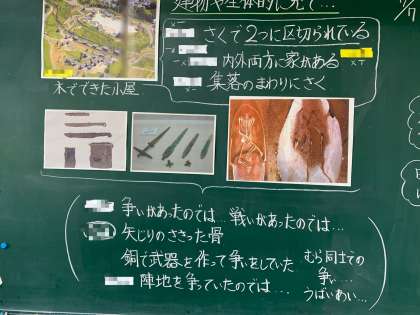 建物や全体的に見て…
さくで2つに区切られている
内外両方に家がある
集落のまわりにさく
木でできた小屋
争いがあったのでは… 戦いがあったのでは…
矢じりのささった骨
銅で武器を作って争いをしていた
むら同士での
争い…
うばいあい…
陣地を争っていたのでは…